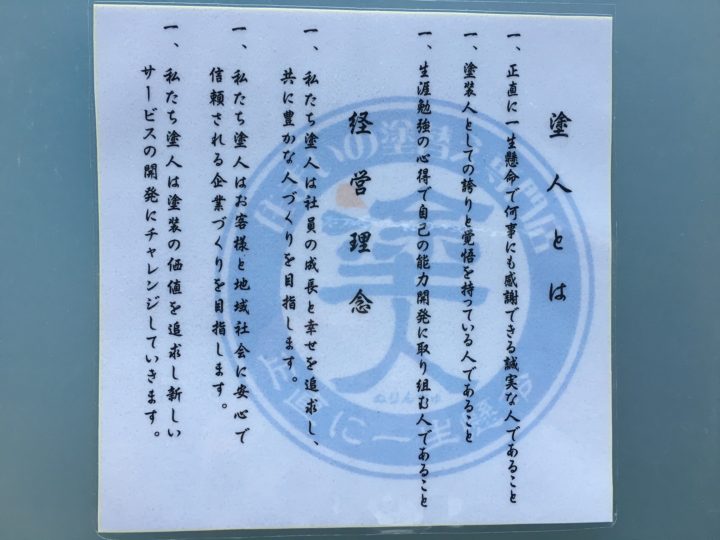 塗人とは
一、正直に一生懸命で何事にも感謝できる誠実な人であること
一、塗装人としての誇りと覚悟を持っている人であること
一、生涯勉強の心得で自己の能力開発に取り組む人であること
経営理念
一、私たち塗人は社員の成長と幸せを追求し、
共に豊かな人づくりを目指します。
一、私たち塗人はお客様と地域社会に安心で
信頼される企業づくりを目指します。
一、私たち塗人は塗装の価値を追求し新しい
サービスの開発にチャレンジしていきます。
住まいの塗替え専門店
塗人
ぬりんちゅ